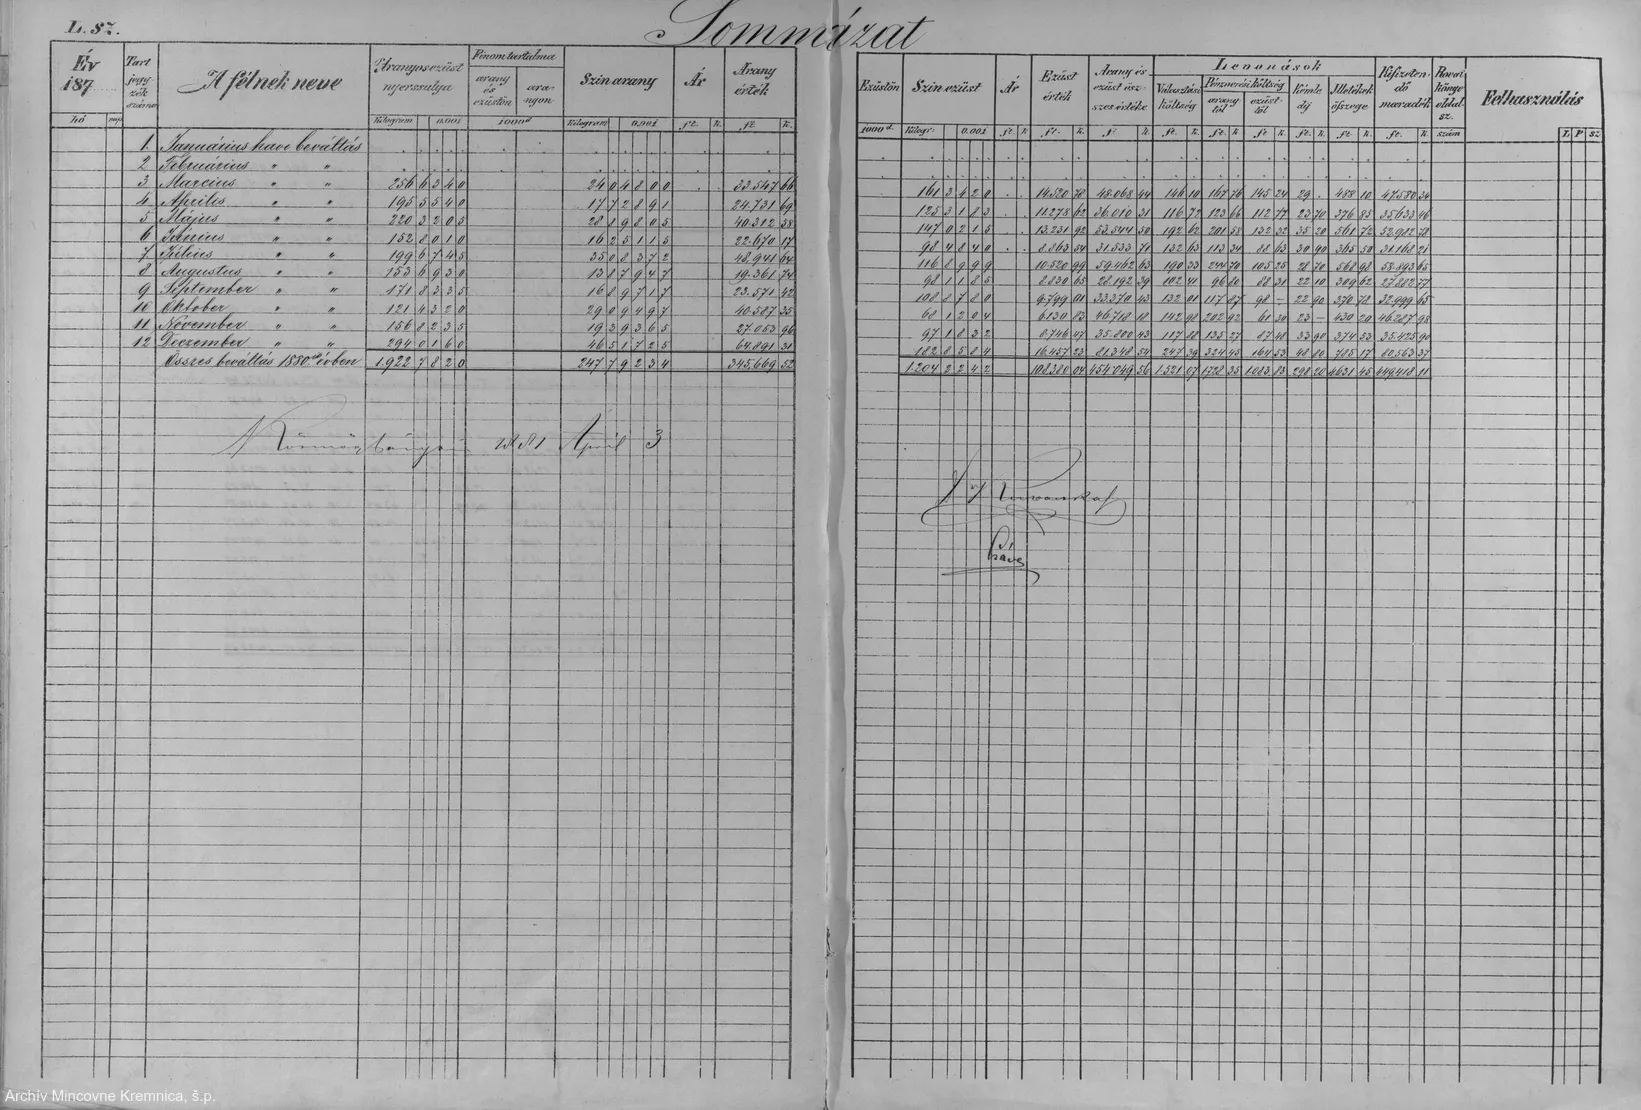 L. Sz.
Sommázat
Év 187
Tart jegyzék száma
A félnek neve
Aranyos ezüst nyerssulya
Finom tartalma
arany és ezüstön
aranyon
Szin arany
Ár
Arany érték
hó
nap
Kilogram 0.001
1000d
Kilogram 0.001
ft. k.
ft. k.
Ezüstön
Szin ezüst
Ár
Ezüst érték
Arany és ezüst összes értéke
Levonások
Választási költség
Pénzverési költség
arany tól
ezüst től
Kémle díj
Illetékek összege
Kifizetendő maradék
Felhasználás
1000d. Kilogr. 0.001 ft. k. ft. k. ft. k. ft. k. ft. k. ft. k. ft. k. ft. k. ft. k. szám L P sz
1. Januárius havi beváltás
2 Februárius " "
3 Marcius " " 256 6340 24 04800 33.547 66
4 Aprilis " " 195 5540 17 72891 24.731 69
5 Május " " 220 3205 28 89805 40.312 58
6 Június " " 152 8010 16 25115 22.670 17
7 Július " " 199 6745 35 08372 48.941 64
8 Augustus " " 153 6930 13 87947 19.361 74
9 September " " 171 8335 16 89717 23.571 42
10 Oktober " " 121 4320 29 09497 40.587 35
11 November " " 156 8235 19 39365 27.053 96
12 Deczember " " 294 0160 46 51725 64.891 31
Összes beváltás 1880dik évben 1.922 7820 247 79234 345.669 52
161 3620 14.520 78 48.068 44 146 10 167 76 145 24 29 . 488 10 47.580 34
125 3183 11.278 62 36.010 31 116 72 123 66 112 77 23 70 376 85 35.633 46
147 0215 13.231 92 53.544 50 192 62 201 58 132 32 35 20 561 72 52.982 78
98 4840 8.863 54 31.533 71 132 63 113 34 88 63 30 90 365 50 31.168 21
116 8999 10.520 99 59.462 63 190 33 244 70 105 25 28 70 568 98 58.893 65
98 1185 8.830 65 28.192 39 102 41 96 80 88 31 22 10 309 62 27.882 77
108 8780 9.799 01 33.370 43 132 01 117 87 98 – 22 90 370 78 32.999 65
68 1204 6.130 83 46.718 18 142 98 202 92 61 30 23 – 430 20 46.287 98
97 1832 8.746 47 35.800 43 117 88 135 27 87 48 33 90 374 53 35.425 90
182 8584 16.457 23 81.348 54 247 39 324 45 164 53 48 80 785 17 80.563 37
1.204 2242 108.380 04 454.049 56 1.521 07 1728 35 1083 83 298 20 4631 45 449.418 11
Körmöczbányán 1881 April 3
Archív Mincovne Kremnica, š.p.